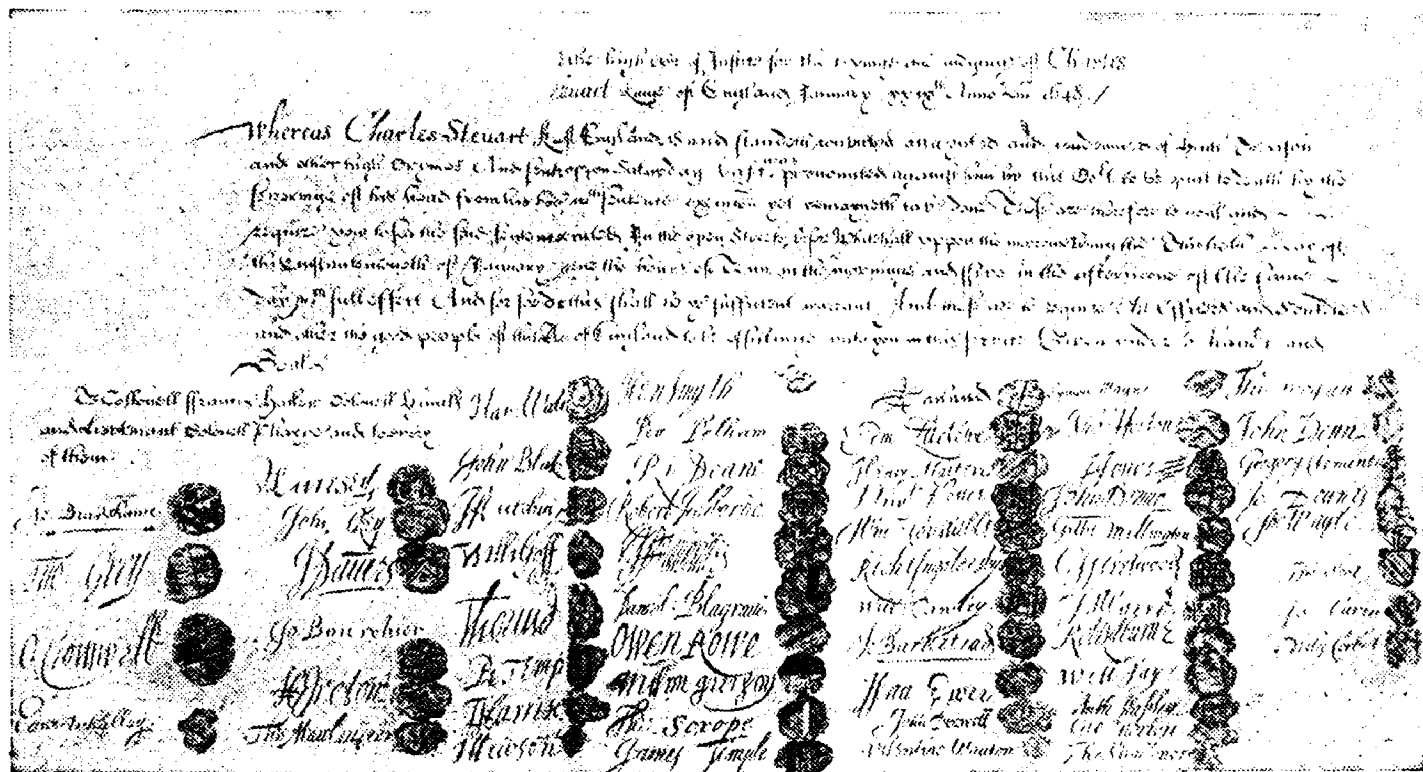 the high Cort of Justice for the tryinge and judginge of Charles
Steuart Kinge of England January xxixth Anno Dni 1648 /
Whereas Charles Steuart K of England is and standeth convicted attaynted and condemned of High Treason
and other high Crymes And sentence uppon Saturday last was pronounced against him by this Cort to be putt to death by the
severinge of his head from his body Of wch sentence execucon yet remayneth to be done These are therefore to will and
require you to see the said sentence executed In the open Streete before Whitehall uppon the morrowe being the Thirtieth day of
this instante moneth of January betweene the houres of Tenn in the morninge and Five in the afternoone of the same
day wth full effect And for soe doing this shall be yor sufficient warrant And these are to require All Officers and Souldiers
and other the good people of this of England to be assistinge unto you in this service Given under or hands and
Seales
To Collonell Francis Hacker Colonell Huncks
and Lieutenant Colonell Phayre and to every
of them
Jo Bradshawe
Tho Grey
O Cromwell
Edw Whalley
M Livesey
John Okey
J Dauers
Jo Bourchier
H Ireton
Tho Mauleverer
Har Waller
John Blak
J Hutchin
Willi Goff
Tho Pride
P Temp
T Harris
J Hewson
Hen Smyth
Per Pelham
Ri Deane
Robert Tichborne
H Edwardes
Daniel Blagrave
Owen Rowe
William Purefoy
Ad Scrope
James Temple
A Garland
Edm Ludlowe
Henry Marten
Vinct Potter
Wm Constable
Rich Ingoldesby
Will Cawley
J Barkstead
Isaa Ewer
John Dixwell
Valentine Wauton
Symon Mayne
Tho Horton
J Jones
John Penne
Gilbt Millington
C Fleetwood
J Alured
Robt Lilburne
Will Say
Anth Stapley
Gre Norton
Tho Challoner
Tho Wogan
John Venn
Gregory Clement
Jo Downes
Tho Wayte
Tho Scot
Jo Carew
Miles Corbet